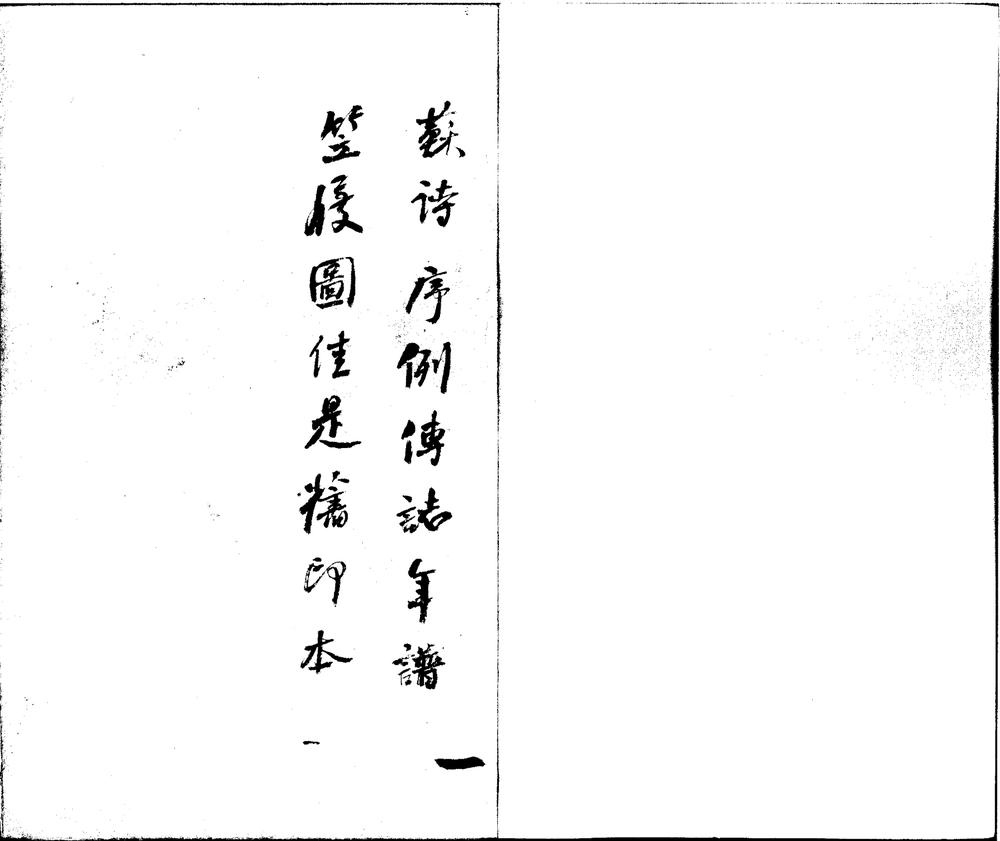 蘇詩序例傳誌年譜
一
笠屐圖佳是印本
一